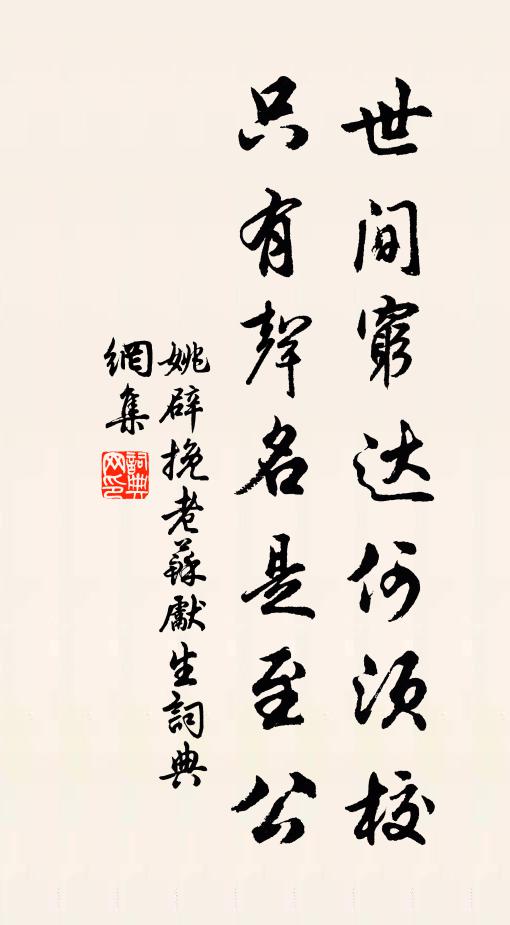 世間窮达何须校
只有聲名是至公
姚辟挽老蘇獻生詞典
網集
詞典
网印